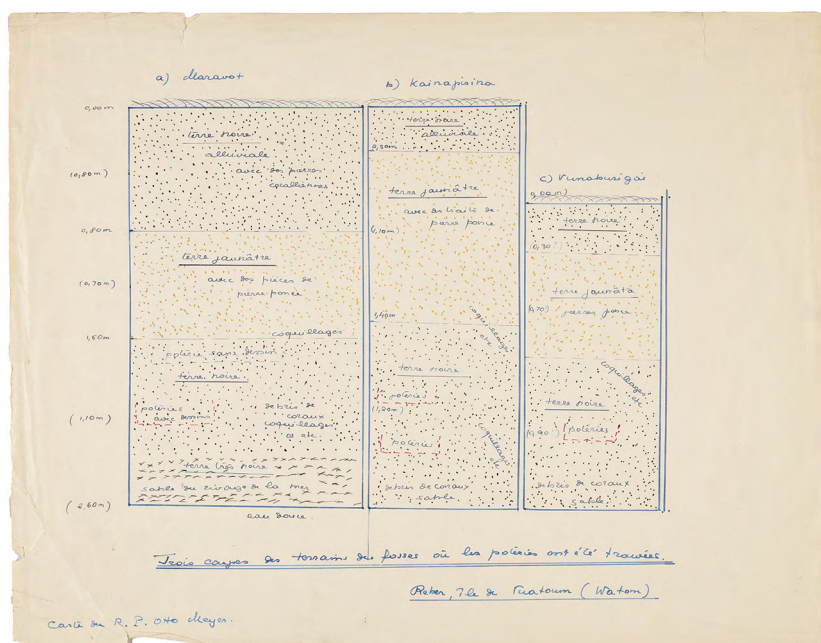 a) Maravot
0,00m
terre noire
alluviale
avec des pierres
coralliennes
(0,80m)
0,80m
terre jaunâtre
avec des pièces de
pierre ponce
(0,70m)
coquillages
1,50m
potérie sans dessin
terre noire
potéries
avec dessins
debris de
coraux
coquillages
os etc.
(1,10m)
terre très noire
sable du rivage de la mer
(2,60m)
eau douce
b) Kainapirina
terre noire
alluviale
0,30m
terre jaunâtre
avec des traits de
pierre ponce
(1,10m)
1,40m
coquillages
etc
terre noire
potéries
(1,20m)
potéries
coquillages
etc
debris de coraux
sable
c) Vunaburigai
0,00m
terre noire
(0,30)
terre jaunâtre
pierre ponce
(0,70)
coquillages
etc
terre noire
(0,90)
potéries
debris de coraux
sable
Trois coupes des terrains des fosses où les potéries ont été trouvées.
Reber, Ile de Vuatoum (Watom)
Carte du R. P. Otto Meyer.